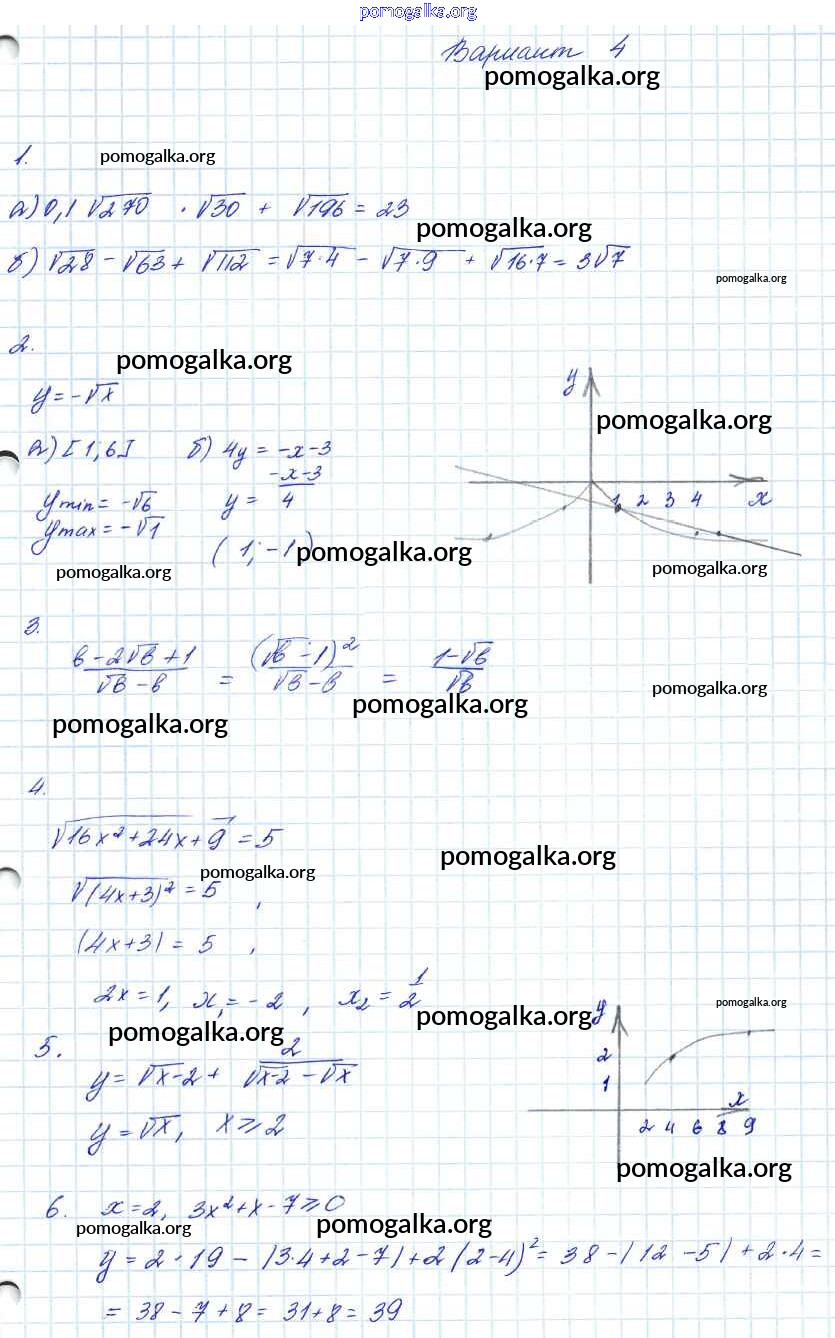 pomogalka.org
Вариант 4
pomogalka.org
1.
pomogalka.org
а) 0,1 √270 · √30 + √196 = 23
pomogalka.org
б) √28 - √63 + √112 = √7·4 - √7·9 + √16·7 = 3√7
pomogalka.org
2.
pomogalka.org
y = -√x
y
pomogalka.org
а) [1; 6] б) 4y = -x-3
y min = -√6 y = -x-3/4
1 2 3 4 x
y max = -√1
(1; -1)
pomogalka.org
pomogalka.org
pomogalka.org
3.
b - 2√b + 1/√b - b = (√b - 1)²/√b - b = 1-√b/√b
pomogalka.org
pomogalka.org
pomogalka.org
4.
√16x² + 24x + 9 = 5
pomogalka.org
pomogalka.org
√(4x+3)² = 5 ,
(4x+3) = 5 ,
2x = 1, x₁ = -2 , x₂ = 1/2
pomogalka.org
pomogalka.org
pomogalka.org
5.
y = √x-2 + 2/√x-2 - √x
y = √x, x ⩾ 2
y
2
1
x
2 4 6 8 9
pomogalka.org
6. x = 2, 3x² + x - 7 ⩾ 0
pomogalka.org
pomogalka.org
y = 2 · 19 - |3·4 + 2 - 7| + 2(2-4)² = 38 - |12 - 5| + 2·4 =
= 38 - 7 + 8 = 31 + 8 = 39